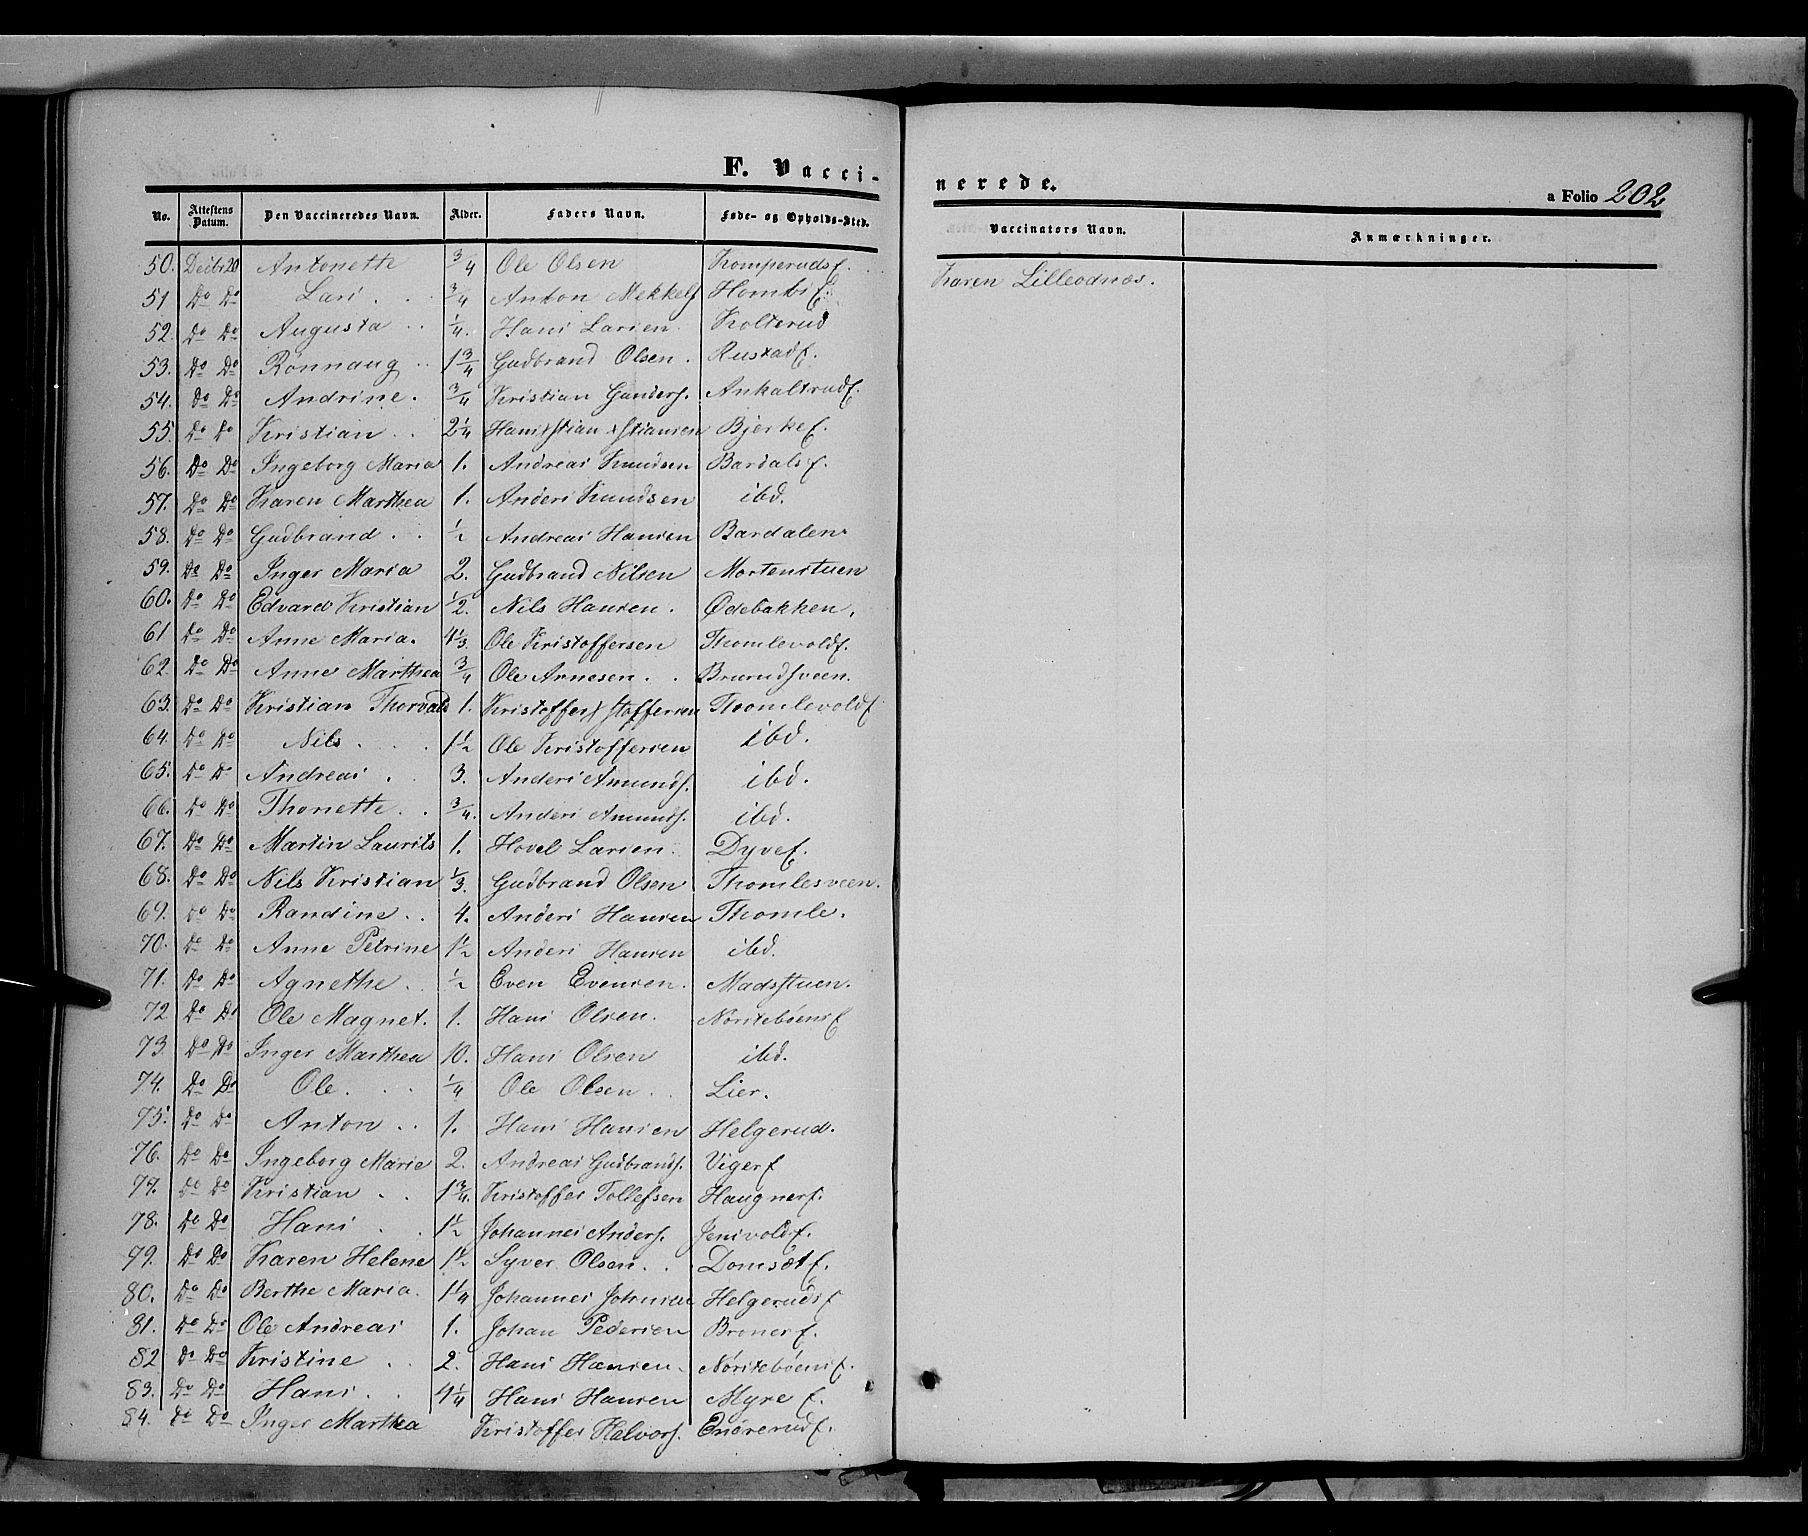 F. Vacci-
No. Attestens Datum. Den Vaccineredes Navn. Alder. Faders Navn. Føde- og Opholds-Sted.
50. Decbr 20 Antonette 3/4 Ole Olsen Komperudsf.
51 Do Do Lars . . 3/4 Anton Mekkels
52. Do Do Augusta . . 1/4. Hans Larsen Kolterud
53. Do Do Rønnaug . . 1 3/4 Gudbrand Olsen . Rustadf.
54. Do Do Andrine . 3/4 Kristian Gunders. Ankaltrudf.
55. Do Do Kristian . . 2 1/4 Bjerkef.
56. Do Do Ingeborg Maria 1. Andreas Knudsen Bardalsf.
57. Do Do Karen Marthea 1. Anders Knudsen ibd.
58. Do Do Gudbrand . . 1/2 Andreas Hansen Bardalen
59. Do Do Inger Maria 2. Gudbrand Nilsen Mortenstuen
60. Do Do Edvard Kristian 1/2. Nils Hansen . Ødebakken.
61 Do Do Anne Maria. 4 1/3. Ole Kristoffersen Thomlevoldf.
62. Do Do Anne Marthea 3/4 Ole Arnesen . . Brurudsveen.
63. Do Do Kristian Thorvald 1. Kristoffer Xstoffersen Thomlevoldf
64. Do Do Nils . . . 1 1/2 Ole Kristoffersen ibd.
65. Do Do Andreas . 3. Anders Amunds. ibd.
66. Do Do Thonette . . 3/4. Anders Amunds. ibd.
67. Do Do Martin Laurits 1. Hovel Larsen . Dyvef.
68. Do Do Nils Kristian 1/3. Gudbrand Olsen Thomlesveen.
69. Do Do Randine . . 4. Anders Hansen Thomle.
70. Do Do Anne Petrine 1 1/2 Anders Hansen ibd.
71. Do Do Agnethe . . 1/2 Even Evensen . Madsstuen.
72 Do Do Ole Magnet. 1. Hans Olsen . Noritebøensf
73. Do Do Inger Marthea 10. Hans Olsen ibd.
74. Do Do Ole . . . 1/4 Ole Olsen . . Lier.
75. Do Do Anton . . 1. Hans Hansen Helgerud.
76. Do Do Ingeborg Marie 2. Andreas Gudbrands. Vigerf
77. Do Do Kristian . . 1 3/4. Kristoffer Tollefsen Haugnerf.
78. Do Do Hans . . 1 1/2 Johannes Anders. Jensvoldf.
79. Do Do Karen Helene 1 1/2 Syver Olsen . . Domsætf.
80. Do Do Berthe Maria . 1 1/4 Johannes Johnsen Helgerudsf
81. Do Do Ole Andreas 1. Johan Pedersen Bronerf.
82 Do Do Kristine . . 2. Hans Hansen . Nøritebøensf.
83. Do Do Hans . . 4 1/4 Hans Hansen Myre f.
84. Do Do Inger Marthea Kristoffer Halvors.
nerede.
a Folio 202
Vaccinators Navn. Anmærkninger.
Karen Lilleodnæs.